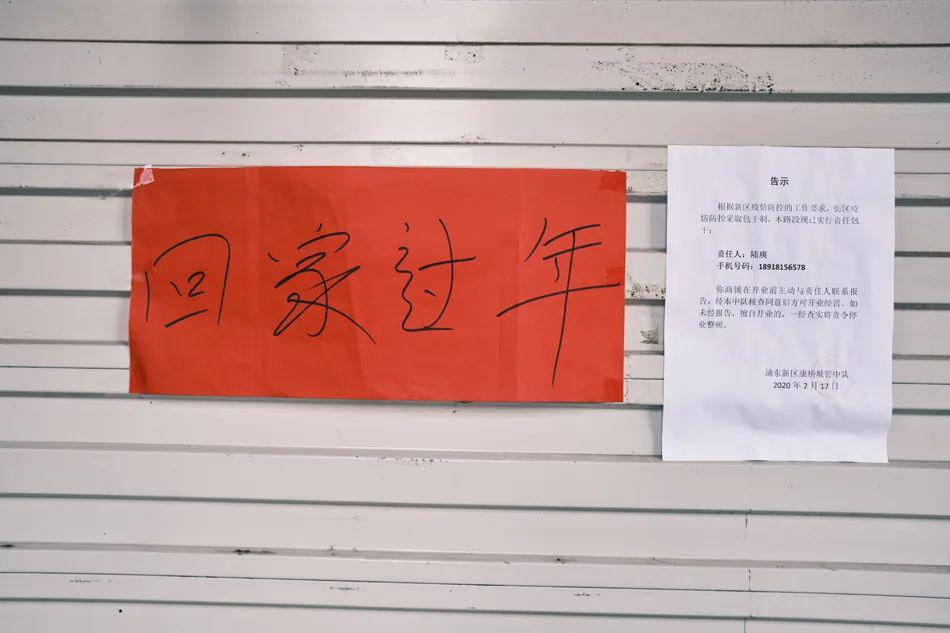 回家过年
告示
根据新区疫情防控的工作要求，街区疫
情防控采取包干制，本路段现已实行责任包
干：
责任人：陆庾
手机号码：18918156578
你商铺在开业前主动与责任人联系报
告，经本中队核查同意后方可开业经营。如
未经报告，擅自开业的，一经查实将责令停
业整顿。
浦东新区康桥城管中队
2020 年 2 月 17 日